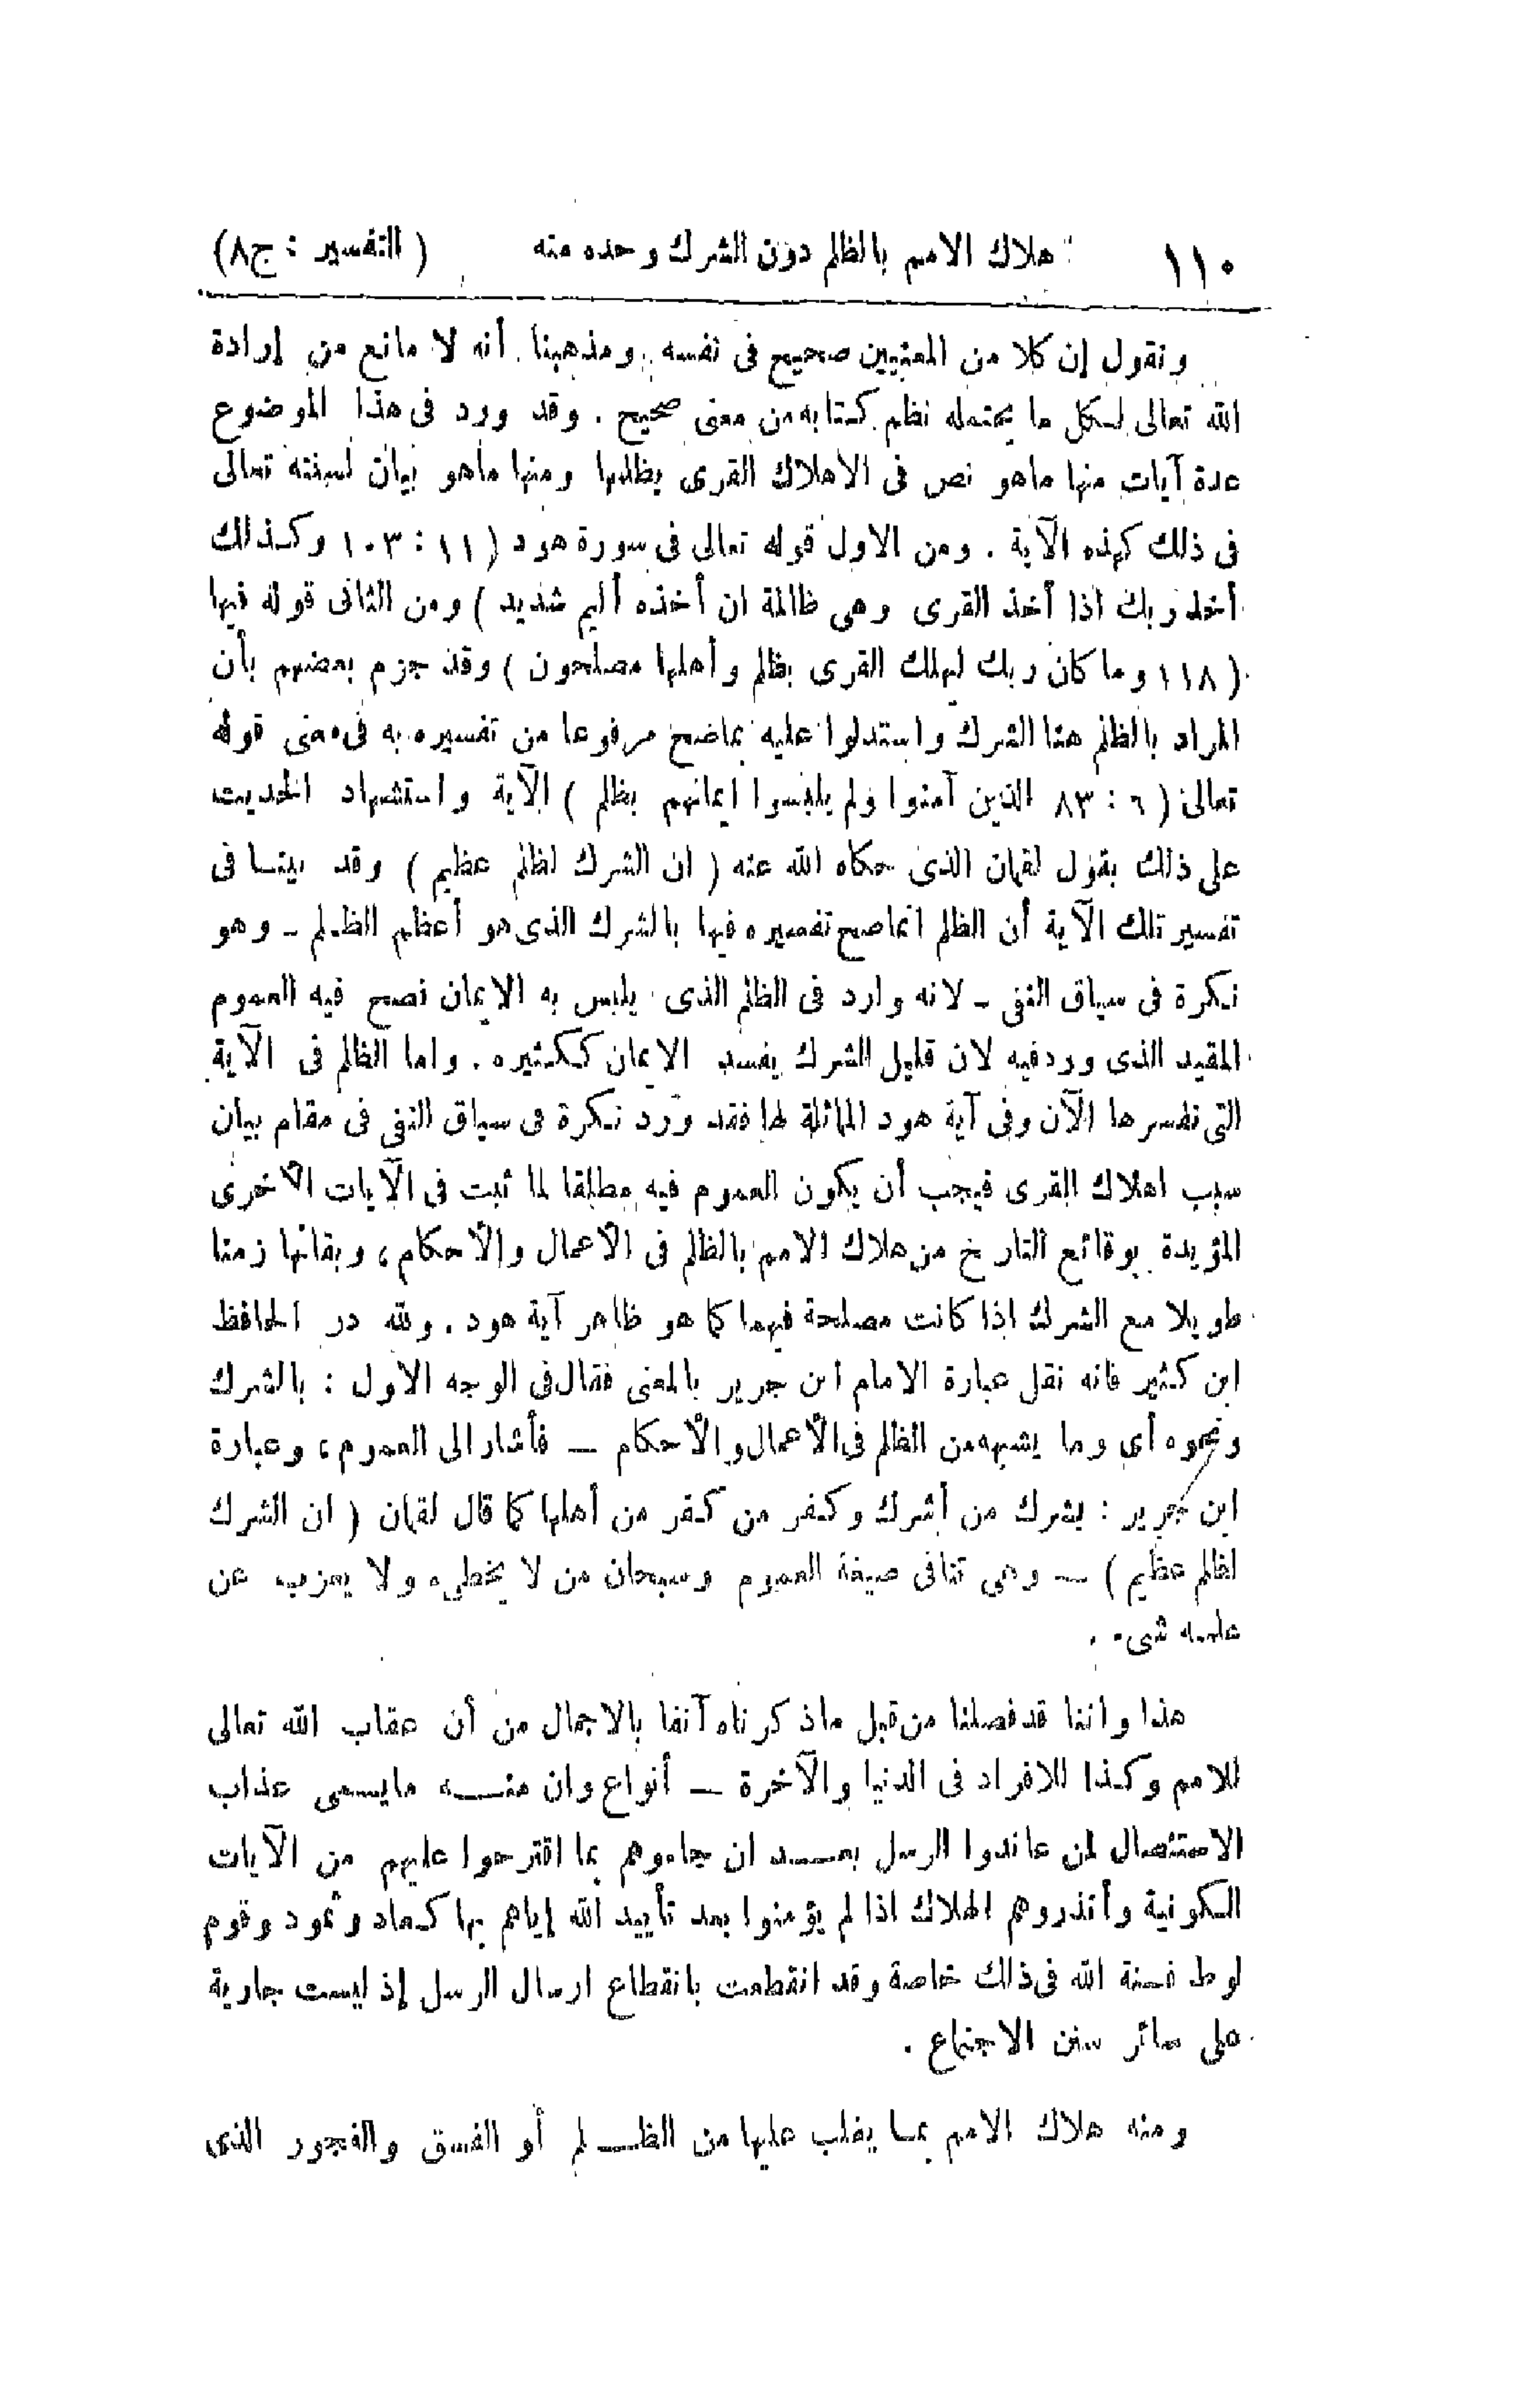 ١١٠ هلاك الامم بالظلم دون الشرك وحده منه (التفسير : ج٨)
ونقول إن كلا من المعنيين صحيح فى نفسه ومذهبنا أنه لا مانع من إرادة
الله تعالى لكل ما يحتمله نظم كتابه من معنى صحيح . وقد ورد فى هذا الموضوع
عدة آيات منها ماهو نص فى الاهلاك القرى بظلمها ومنها ماهو بيان لسنته تعالى
فى ذلك كهذه الآية . ومن الاول قوله تعالى فى سورة هود ( ١١ : ١٠٣ وكذلك
أخذ ربك اذا أخذ القرى وهى ظالمة ان أخذه أليم شديد ) ومن الثانى قوله فيها
( ١١٨ وما كان ربك ليهلك القرى بظلم وأهلها مصلحون ) وقد جزم بعضهم بأن
المراد بالظلم هنا الشرك واستدلوا عليه بماضح مرفوعا من تفسيره به فى معنى قوله
تعالى ( ٦ : ٨٣ الذين آمنوا ولم يلبسوا ايمانهم بظلم ) الآية واستشهاد الحديث
على ذلك بقول لقمان الذى حكاه الله عنه ( ان الشرك لظلم عظيم ) وقد بينا فى
تفسير تلك الآية أن الظلم انما صح تفسيره فيها بالشرك الذى هو أعظم الظلم - وهو
نكرة فى سياق النفى - لانه وارد فى الظلم الذى يلبس به الايمان نصح فيه العموم
المقيد الذى ورد فيه لان قليل الشرك يفسد الايمان ككثيره . واما الظلم فى الآية
التى نفسرها الآن وفى آية هود المماثلة لها فقد ورد نكرة فى سياق النفى فى مقام بيان
سبب اهلاك القرى فيجب أن يكون العموم فيه مطلقا لما ثبت فى الآيات الأخرى
المؤيدة بوقائع التاريخ من هلاك الامم بالظلم فى الأعمال والأحكام ، وبقائها زمنا
طويلا مع الشرك اذا كانت مصلحة فيهما كما هو ظاهر آية هود . ولله در الحافظ
ابن كثير فانه نقل عبارة الامام ابن جرير بالمعنى فقال فى الوجه الاول : بالشرك
ونحوه أى وما يشبهه من الظلم فى الأعمال والأحكام — فأشار الى العموم ، وعبارة
ابن جرير : بشرك من أشرك وكفر من كفر من أهلها كما قال لقمان ( ان الشرك
لظلم عظيم ) — وهى تنافى صيغة العموم وسبحان من لا يخطىء ولا يعزب عن
علمه شىء .
هذا واننا قد فصلنا من قبل ماذكرناه آنفا بالاجمال من أن عقاب الله تعالى
للامم وكذا للافراد فى الدنيا والآخرة — أنواع وان منه مايسمى عذاب
الاستئصال لمن عاندوا الرسل بعد ان جاءوهم بما اقترحوا عليهم من الآيات
الكونية وأنذروهم الهلاك اذا لم يؤمنوا بعد تأييد الله إياهم بها كعاد وثمود وقوم
لوط فسنة الله فى ذلك خاصة وقد انقطعت بانقطاع ارسال الرسل إذ ليست جارية
على سائر سنن الاجتماع .
ومنه هلاك الامم بما يغلب عليها من الظلم أو الفسق والفجور الذى